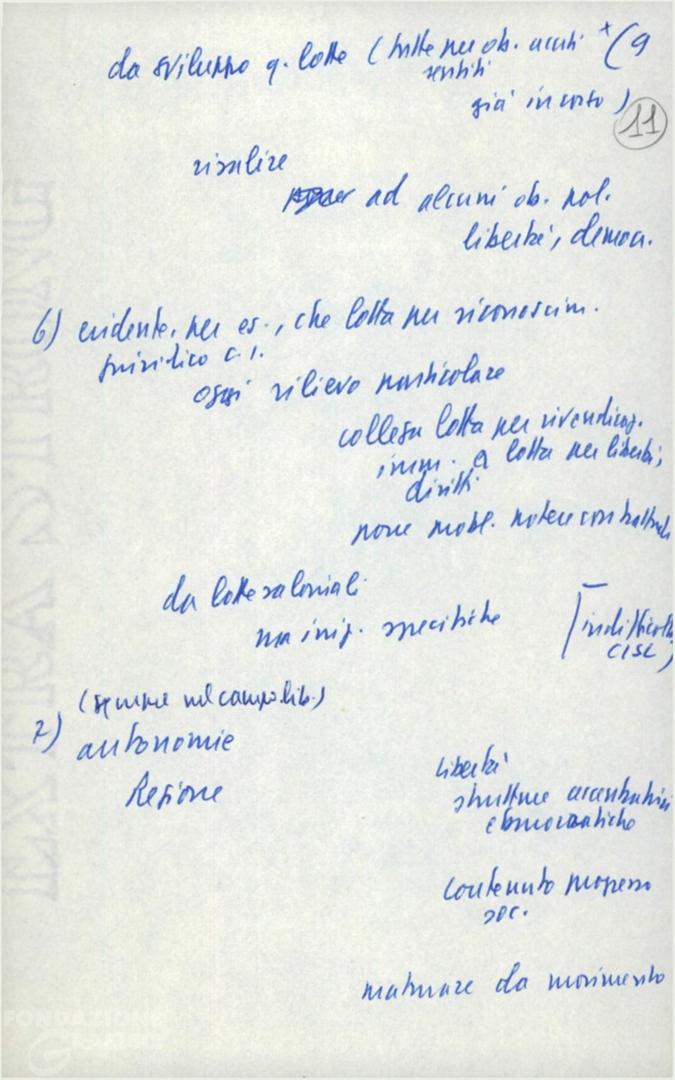 da sviluppo q. lotte (tutte per ob. acuti + (9
sentiti
già in corso)
11
risalire
ad alcuni ob. pol.
libertà, democr.
6) evidente, per es., che lotta per riconoscim.
giuridico c.i.
oggi rilievo particolare
collega lotta per rivendicaz.
imm. a lotta per libertà,
diritti
pone probl. potere contrattuale
da lotte salariali
ma iniz. specifiche
[in difficoltà
CISL]
(sempre nel campo lib.)
7) autonomie
Regione
libertà
strutture accentratrici
e burocratiche
contenuto progresso
soc.
maturare da movimento
FONDAZIONE
GRAMSCI